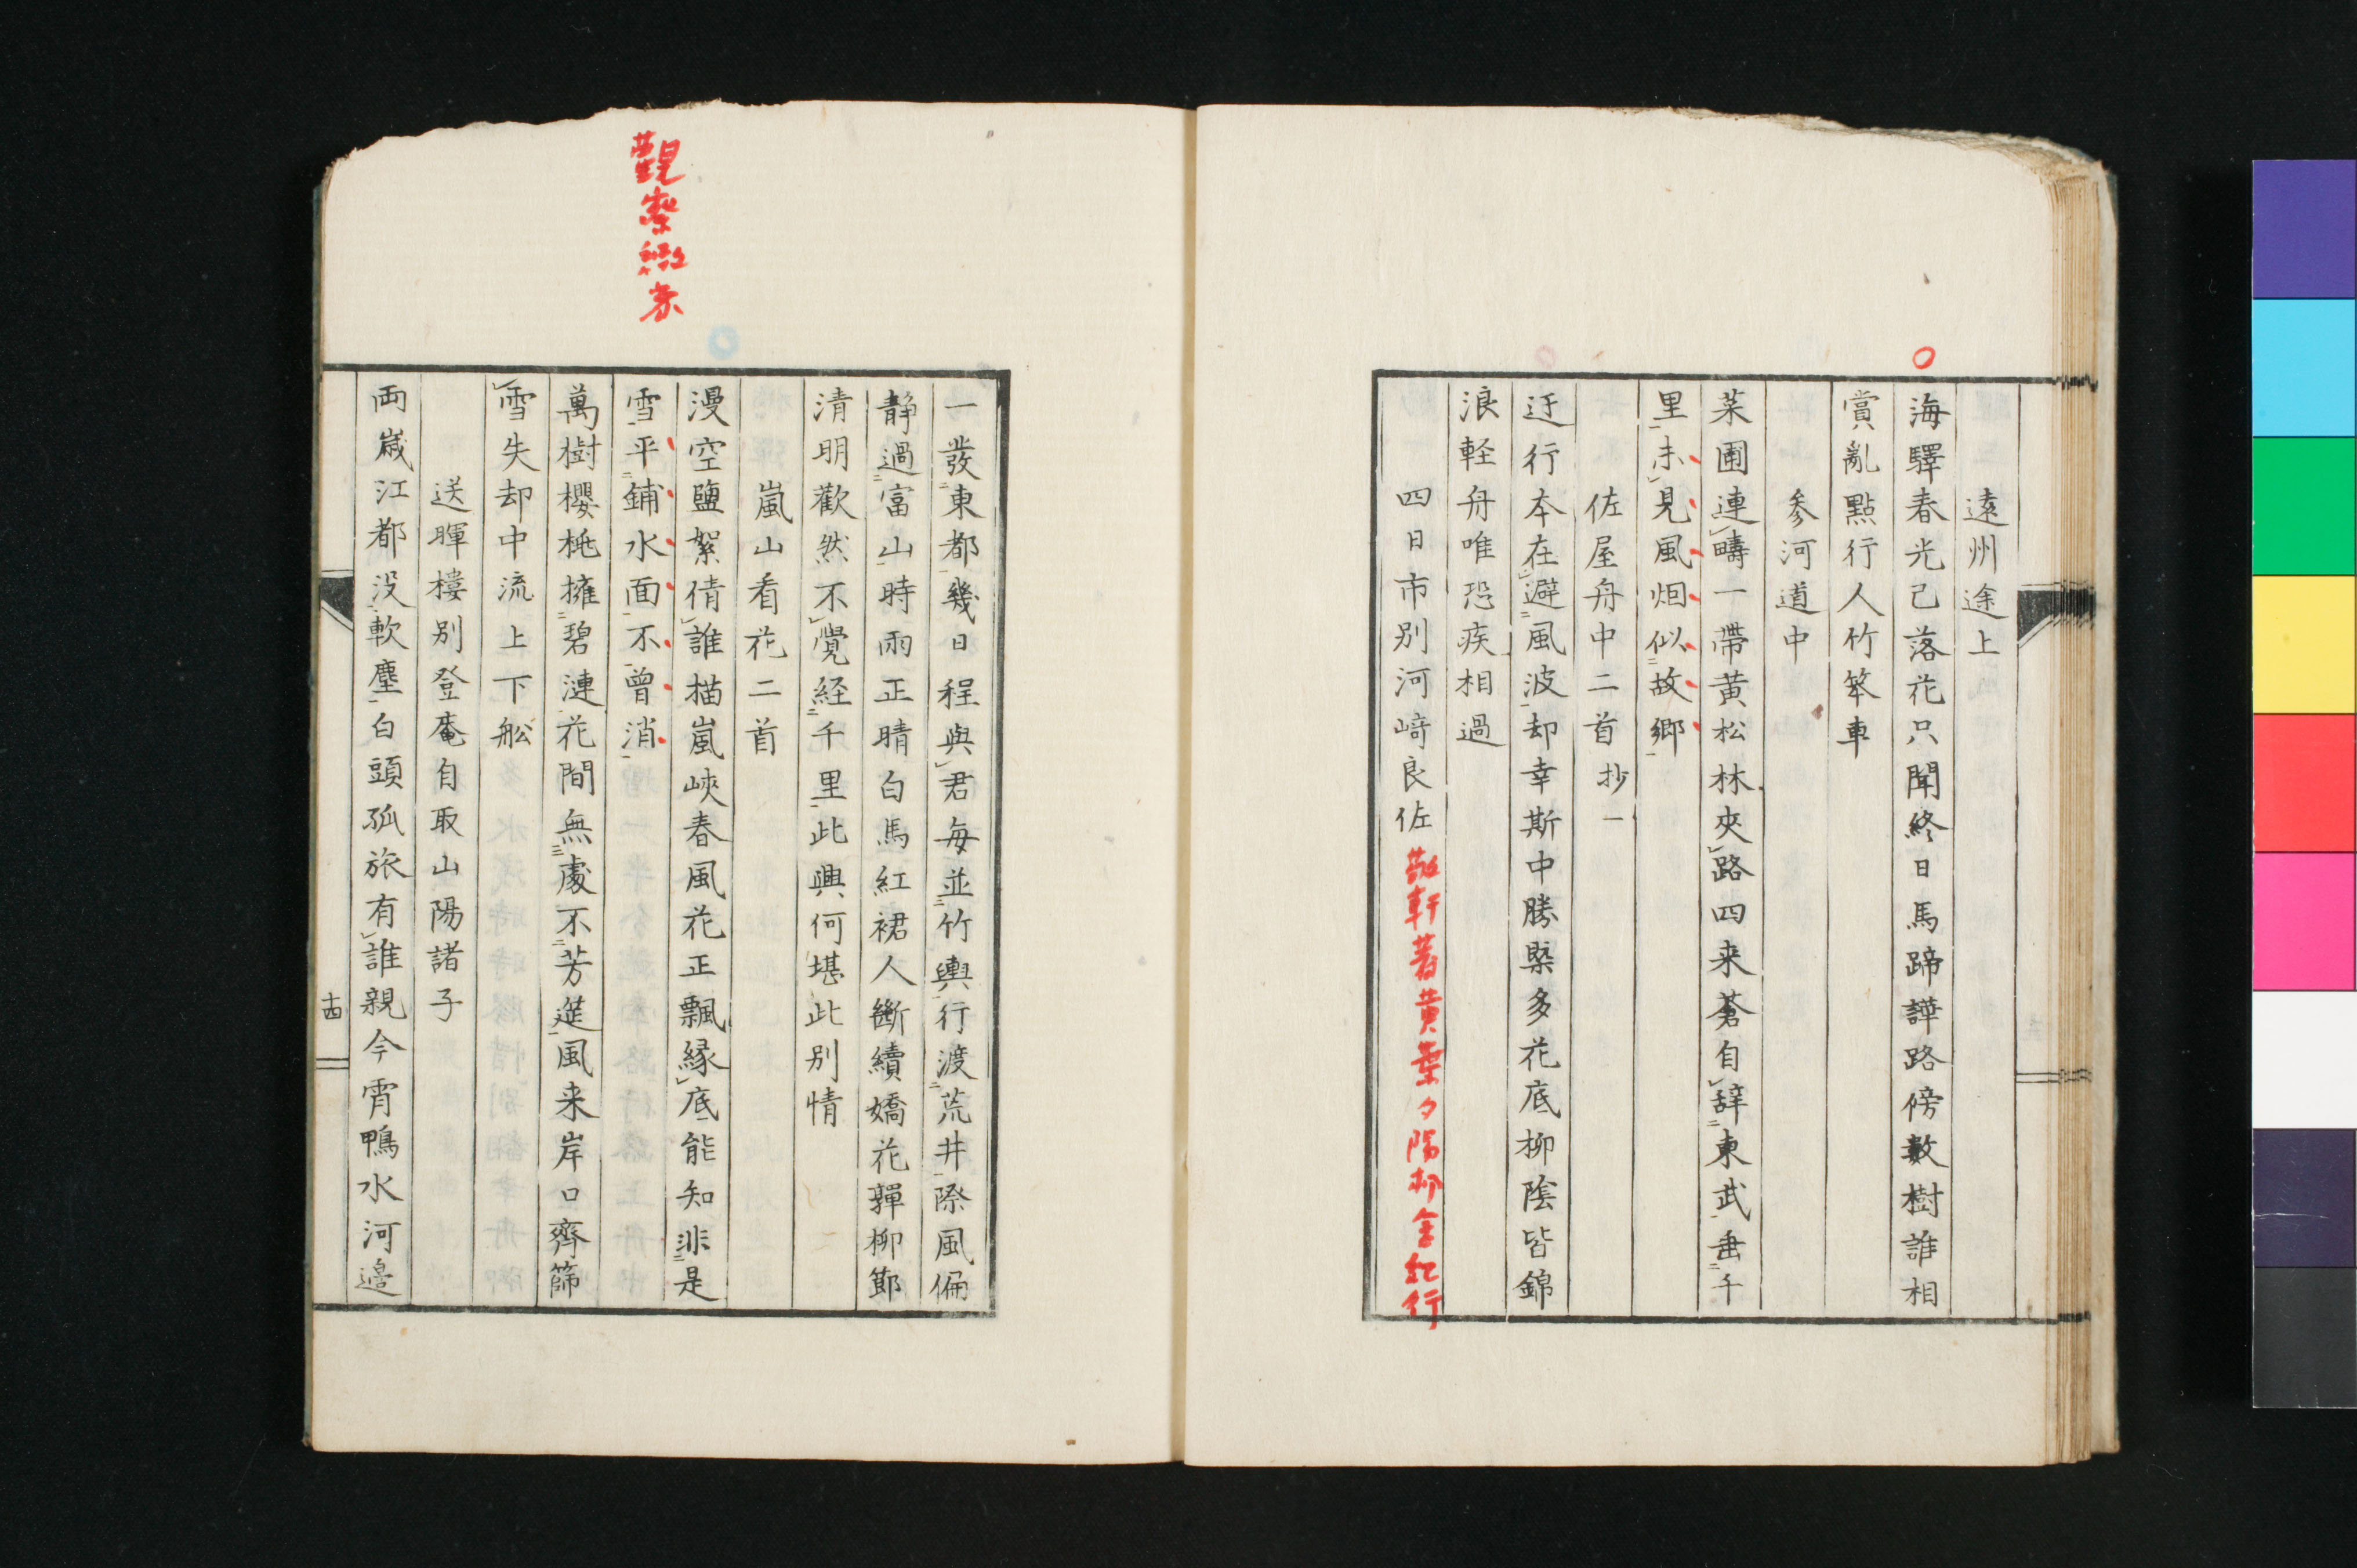 遠州途上
海驛春光已落花只聞終日馬蹄譁路傍數樹誰相
賞亂點行人竹笨車
参河道中
菜圃連疇一帶黄松林夾路四来蒼自辞東武垂千
里未見風烟似故郷
佐屋舟中二首抄一
迂行本在避風波却幸斯中勝槩多花底柳陰皆錦
浪軽舟唯恐疾相過
四日市別河﨑良佐
敬軒著黄葉夕陽邨舎紀行
一發東都幾日程與君毎並竹輿行渡荒井際風偏
静過富山時雨正晴白馬紅裙人斷續嬌花嚲柳鄭
清明歡然不覺経千里此興何堪此別情
嵐山看花二首
漫空鹽絮倩誰描嵐峽春風花正飄縁底能知非是
雪平鋪水面不曾消
觀察緻密
萬樹櫻桃擁碧漣花間無處不芳筵風来岸口齊篩
雪失却中流上下舩
送暉樓別登庵自取山陽諸子
両歳江都没軟塵白頭孤旅有誰親今宵鴨水河邉
十四